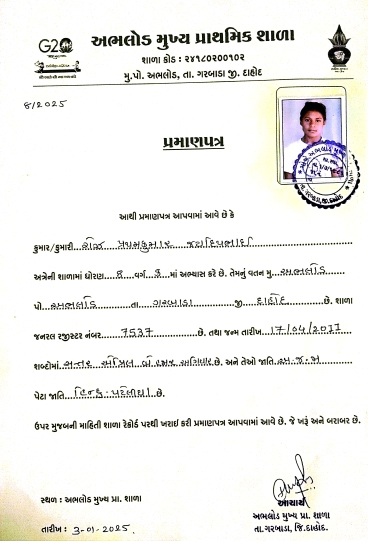 G20
અભલોડ મુખ્ય પ્રાથમિક શાળા
શાળા કોડ : ૨૪૧૮૦૨૦૦૧૦૨
મુ.પો. અભલોડ, તા. ગરબાડા જી. દાહોદ
8/2025
પ્રમાણપત્ર
આથી પ્રમાણપત્ર આપવામાં આવે છે કે
કુમાર/કુમારી
અત્રેની શાળામાં ધોરણ 8 વર્ગ માં અભ્યાસ કરે છે. તેમનું વતન મુ. અભલોડ
પો. અભલોડ તા ગરબાડા જી. દાહોદ છે. શાળા
જનરલ રજીસ્ટર નંબર 7537 છે. તથા જન્મ તારીખ 17/04/2011
શબ્દોમાં સત્તર એપ્રિલ બે હજાર અગિયાર છે. અને તેઓ જાતિ અ.જ.જા
પેટા જાતિ હિન્દુ-પટેલીયા છે.
ઉપર મુજબની માહિતી શાળા રેકોર્ડ પરથી ખરાઈ કરી પ્રમાણપત્ર આપવામાં આવે છે. જે ખરૂં અને બરાબર છે.
સ્થળ : અભલોડ મુખ્ય પ્રા. શાળા
આચાર્ય
અભલોડ મુખ્ય પ્રા. શાળા
તારીખ : 3-01-2025
તા.ગરબાડા, જિ.દાહોદ.